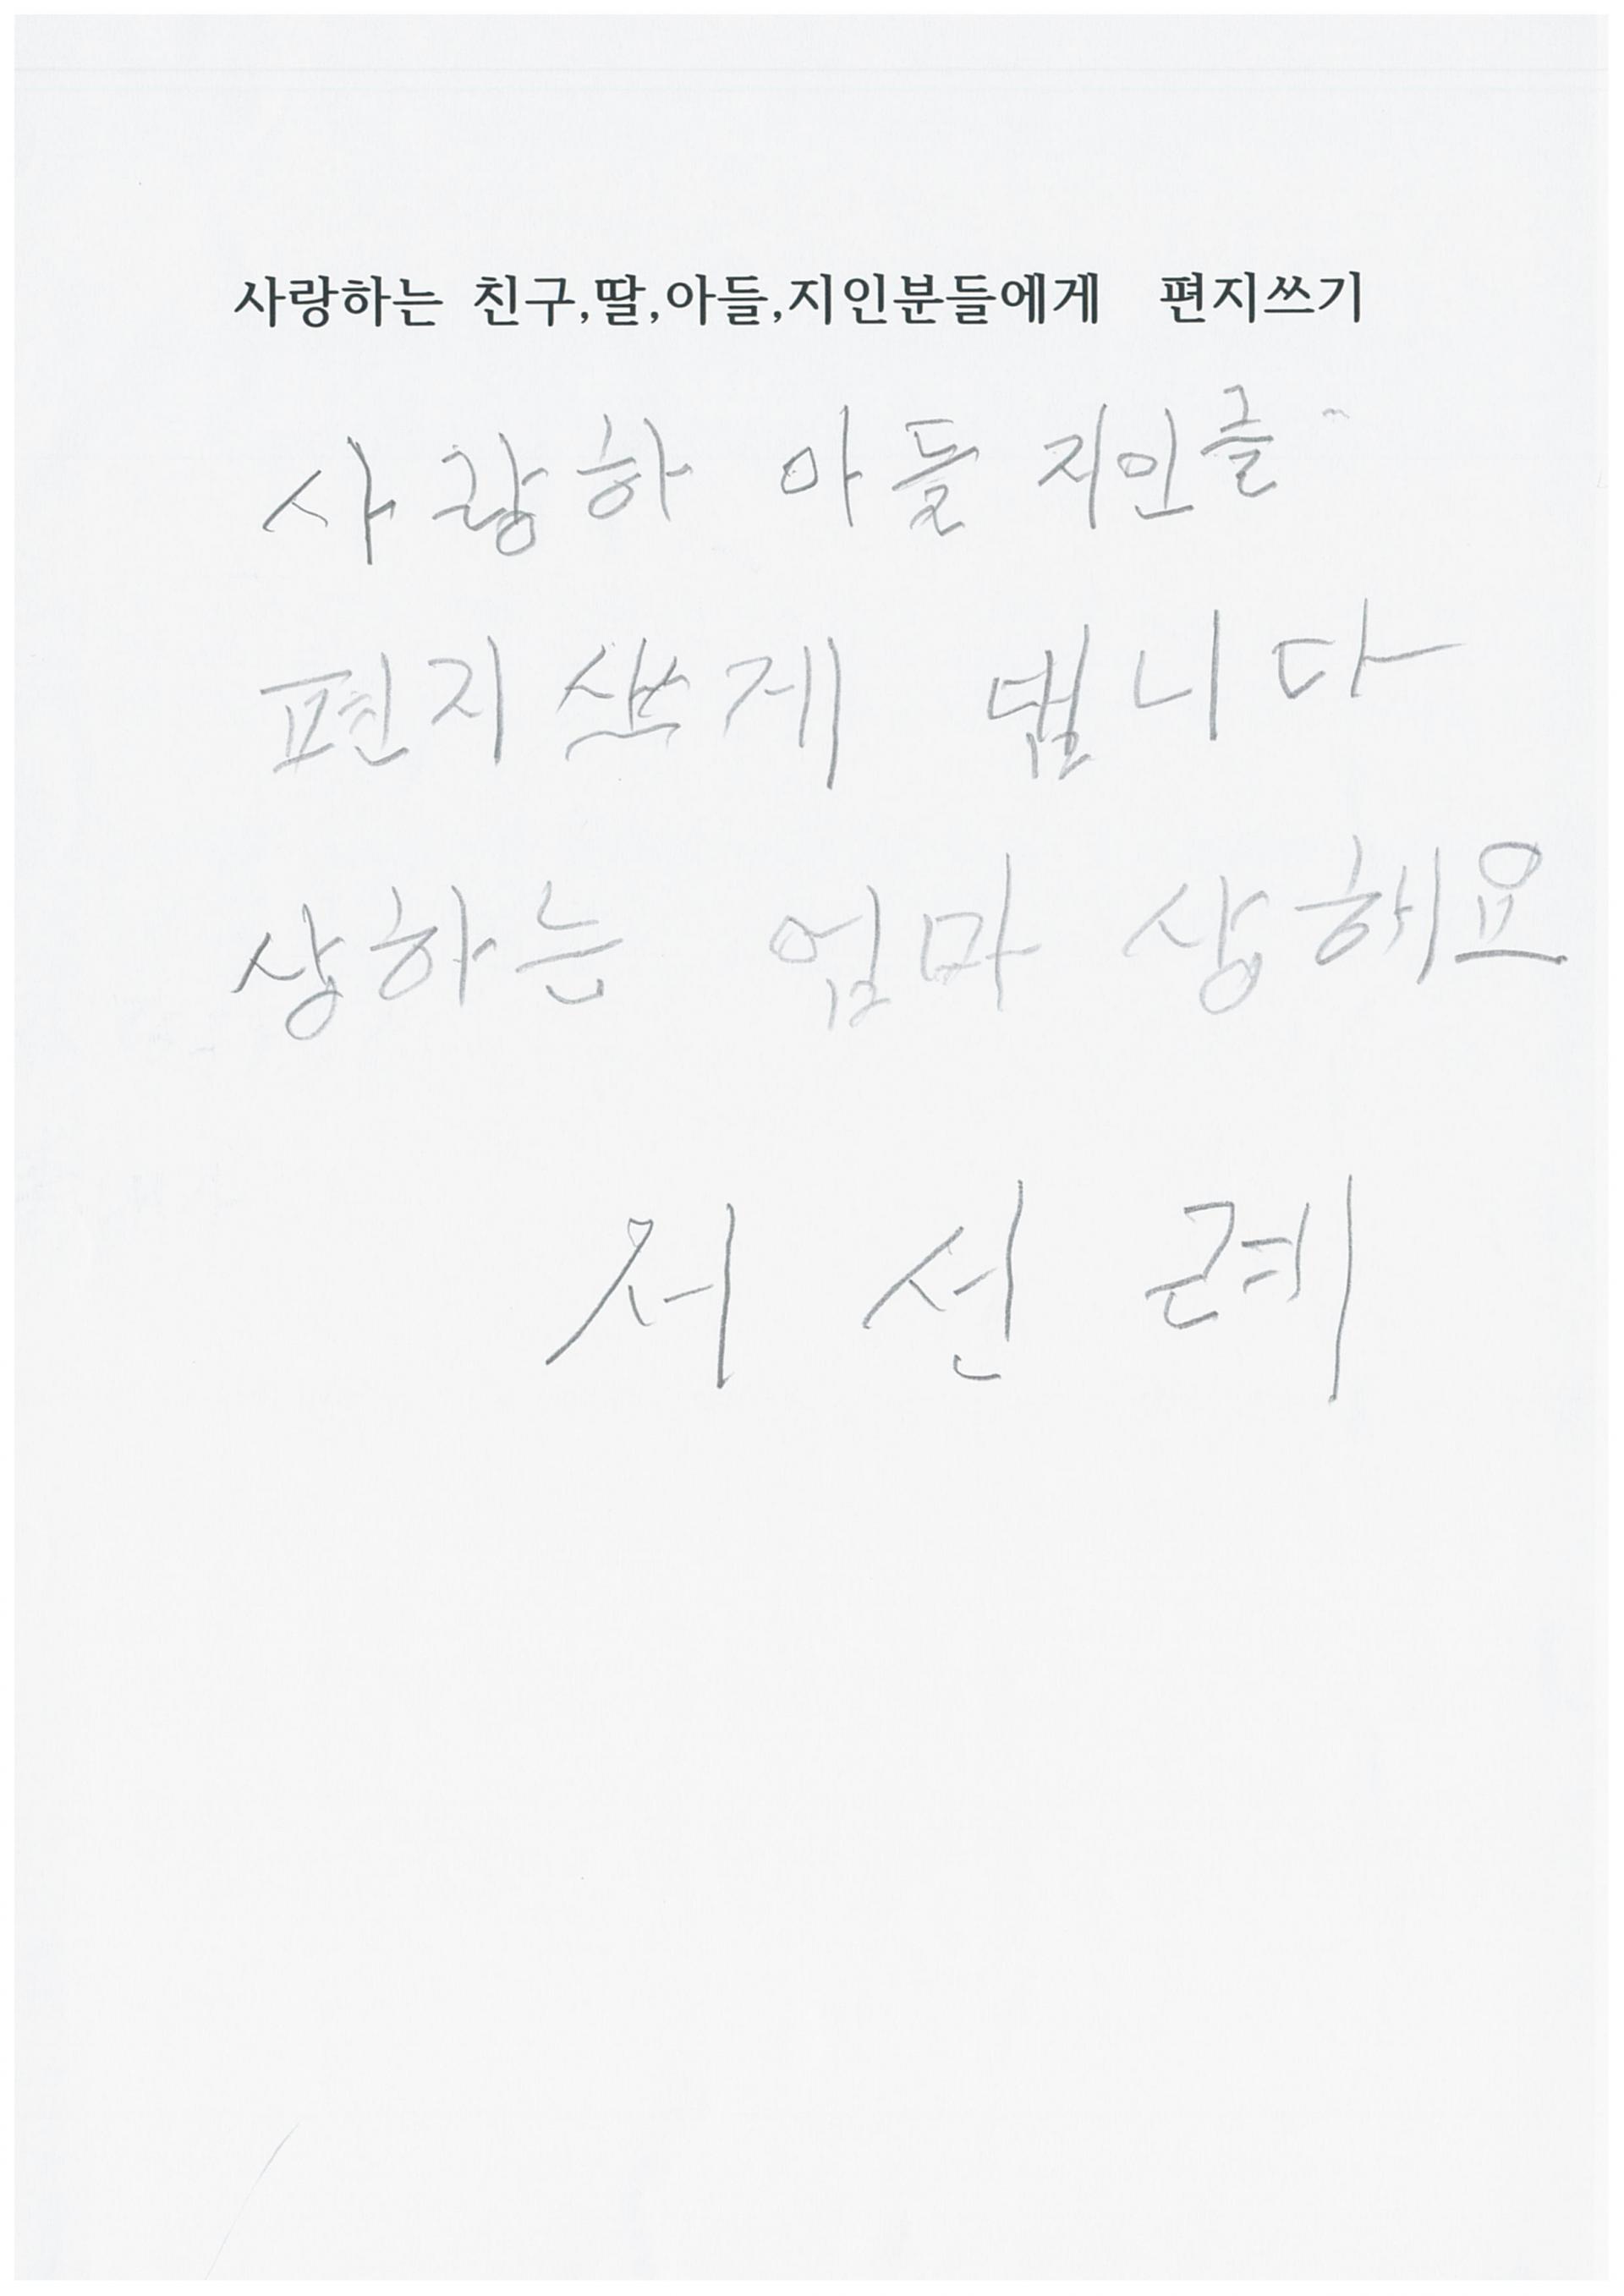 사랑하는 친구,딸,아들,지인분들에게 편지쓰기
사랑하 아들 지인글
편지쓰게 냅니다
상하는 엄마 상해요
서 선 례